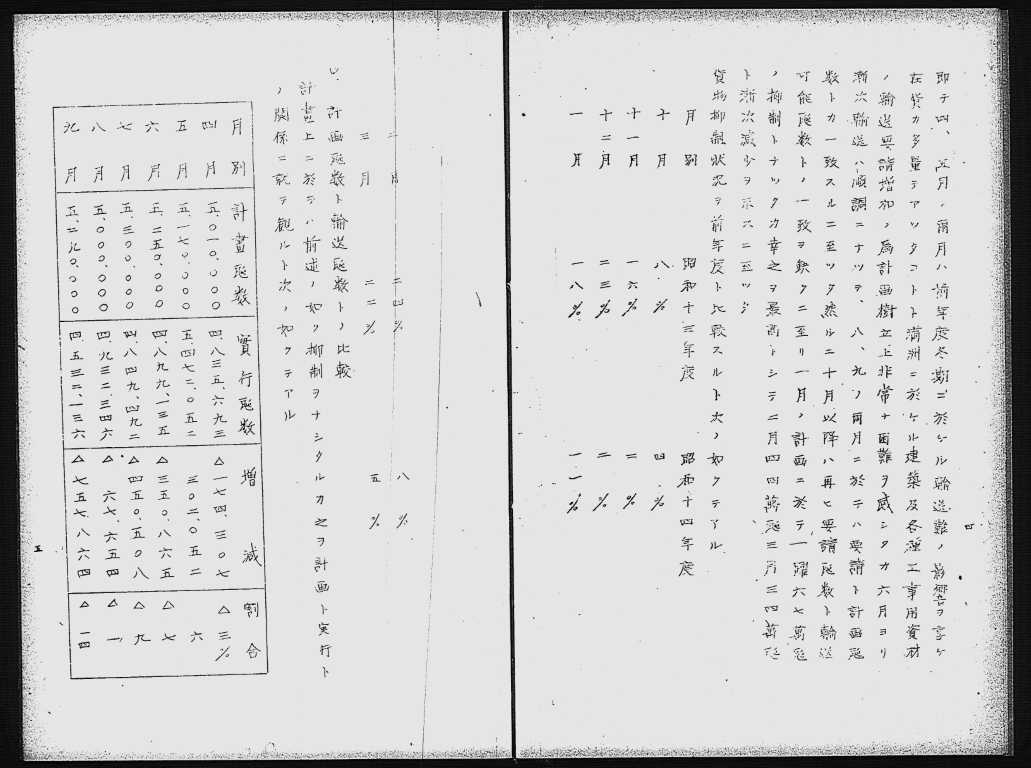 四
即チ四、五月ノ兩月ハ前年度冬期ニ於ケル輸送難ノ影響ヲ享ケ
在貨カ多量テアツタコトト滿洲ニ於ケル建築及各種工事用資材
ノ輸送要請增加ノ為計画樹立上非常ナ困難ヲ感シタカ六月ヨリ
漸次輸送ハ順調ニナツテ、八、九ノ兩月ニ於テハ要請ト計画瓲
数トカ一致スルニ至ツタ然ルニ十月以降ハ再ヒ要請瓲数ト輸送
可能瓲数トノ一致ヲ缺クニ至リ一月ノ計画ニ於テ一躍六七萬瓲
ノ抑制トナツタカ幸之ヲ最高トシテ二月四四萬瓲三月三四萬瓲
ト漸次減少ヲ示スニ至ツシ
貨物抑制狀況ヲ前年度ト比較スルト次ノ如クテアル
月別 昭和十三年度 昭和十四年度
十月 八% 四%
十一月 一六% 二%
十二月 二三% 二%
一月 一八% 一一%
二月 二四% 八%
三月 二二% 五%
計画瓲数ト輸送瓲数トノ比較
計畫上ニ於テハ前述ノ如ク抑制ヲナシタルカ之ヲ計画ト実行ト
ノ関係ニ就テ観ルト次ノ如クテアル
月別 計畫瓲数 實行瓲数 增減 割合
四月 五、〇一〇、〇〇〇 四、八三五、六九三 △一七四、三〇七 △三%
五月 五、一七〇、〇〇〇 五、四七二、〇五二 三〇二、〇五二 六
六月 五、二五〇、〇〇〇 四、八九九、一三五 △三五〇、八六五 △七
七月 五、三〇〇、〇〇〇 四、八四九、四九二 △四五〇、五〇八 △九
八月 五、〇〇〇、〇〇〇 四、九三二、三四六 △六七、六五四 △一
九月 五、二九〇、〇〇〇 四、五三二、一三六 △七五七、八六四 △一四
五